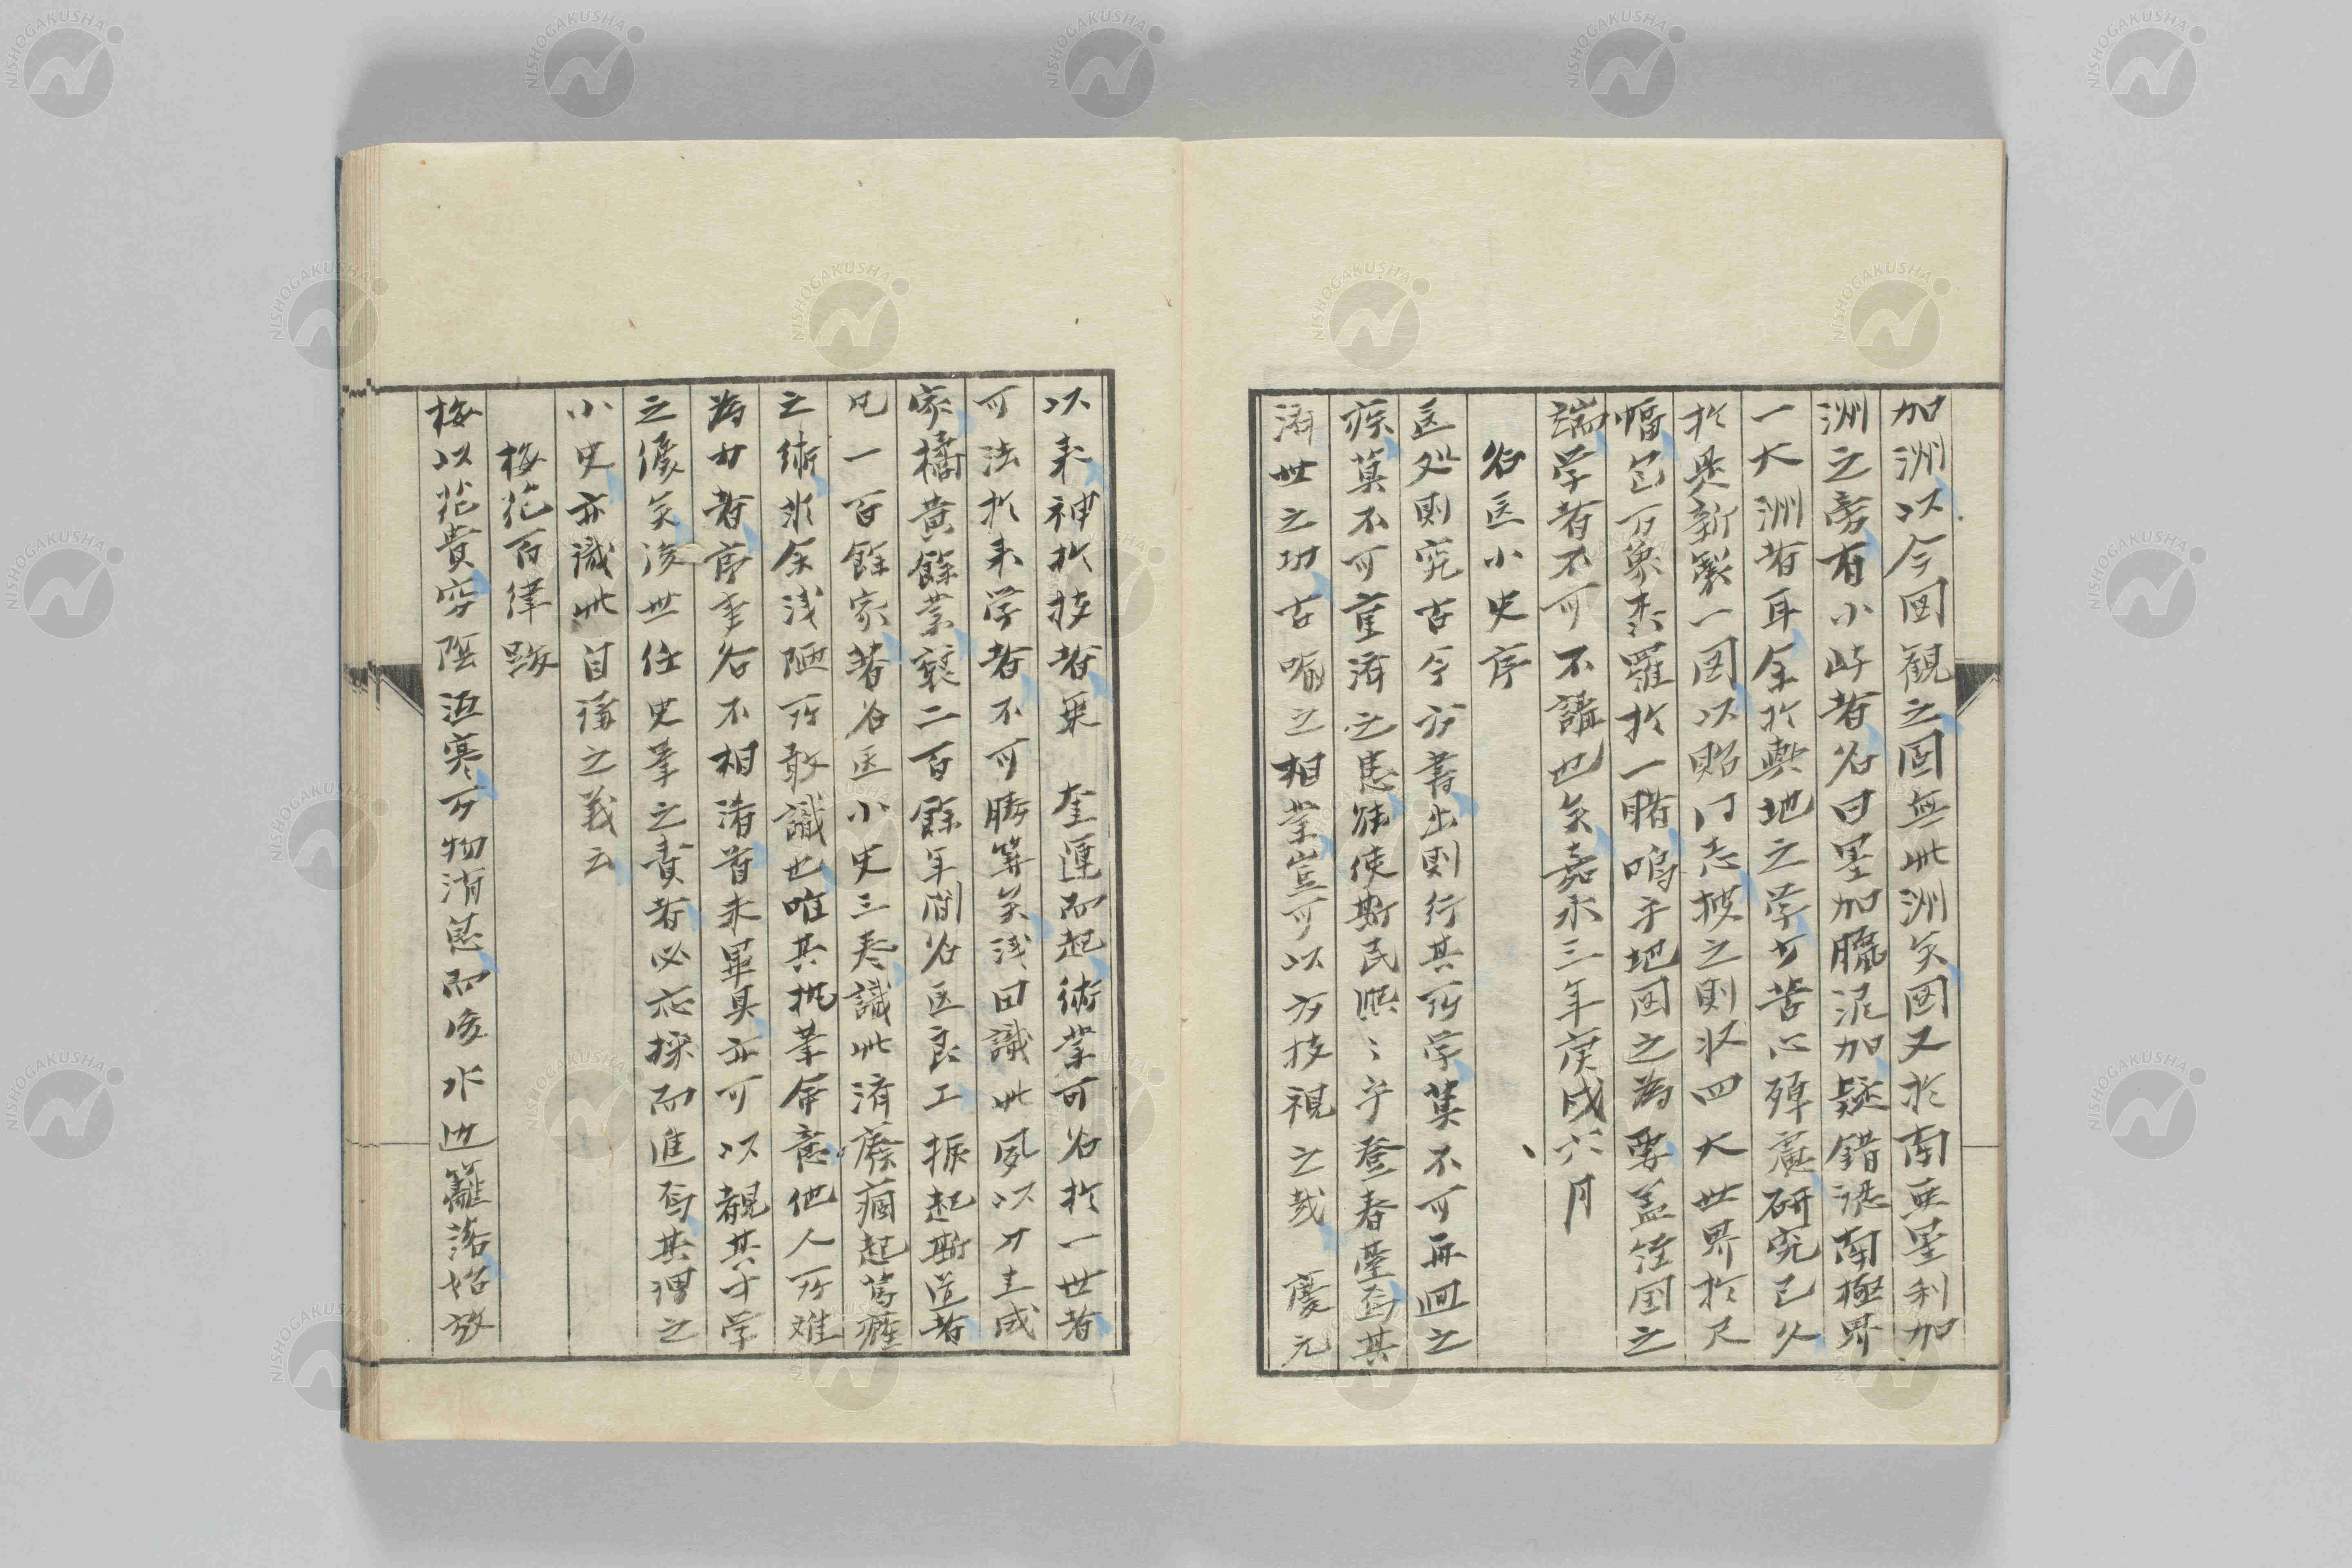 加洲以今図観之図無此洲矣図又於南亜墨利加
洲之旁有小峙者名曰墨加臘泥加疑錯認南極界
一大洲者耳余於輿地之学尤苦心殫慮研究已久
於是新製一図以貽同志披之則収四大世界於尺
幅包万象森羅於一睹嗚乎地図之為要盖経国之
端学者不可不講也矣嘉永三年庚戌六月
名医小史序
医処則究古今方書出則行其所学葉不可再回之
疾莫不可重済之患能使斯民熙々乎登春臺焉其
済世之功古喩之相業豈可以方技視之哉 慶元
以来神於技者乗 奎運而起術業可名於一世者
可法於来学者不可勝筭矣浅田識此夙以才主成
家橘黄餘業裒二百餘年間名医良工振起斯道者
凡一百餘家著名医小史三巻識此済癈痼起篤癃
之術非余浅陋所敢議也唯其執業屈意他人所难
為也者序事名不相渚首末畢具亦可以覩其才学
之優矣後世任史筆之責者必応採而進焉其謂之
小史亦識此自謙之義云
梅花百律跋
梅以花貴窮陰沍寒万物消息而後水辺籬落始放
NISHOGAKUSHA